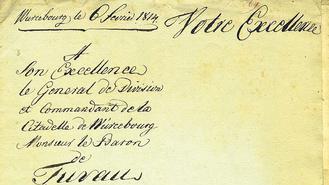 Wurcebourg, le 6 fevrié 1814.
Votre Excellence
A
Son Excellence
le General de Division
et Commandant de la
Citadelle de Würcebourg
Monsieur le Baron
de
Tureau